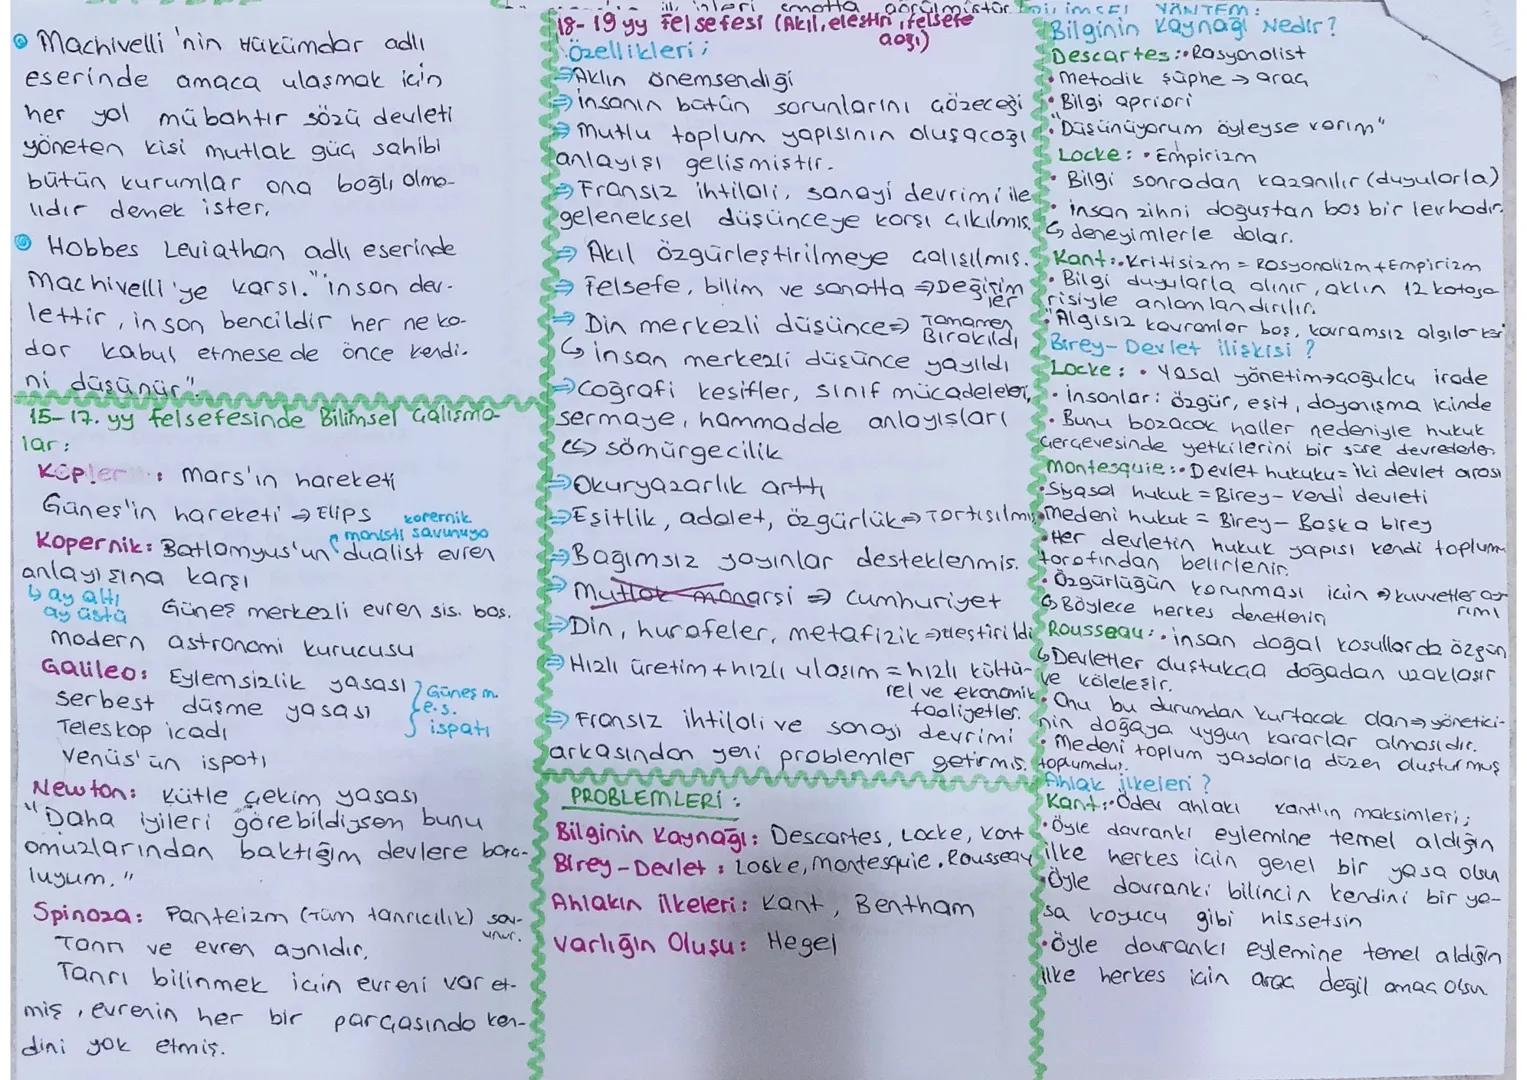 Machivelli'nin Hükümdar adlı
eserinde amaca ulaşmak için
her yol mübahtır sözü devleti
yöneten kişi mutlak güç sahibi
bütün kurumlar ona bağlı olma-
lıdır demek ister.
Hobbes Leviathan adlı eserinde
Machivelli'ye karşı. "insan dev-
lettir, insan bencildir her ne ka-
dar kabul etmese de önce kendi-
ni düşünür"
15-17. yy felsefesinde Bilimsel Çalışma-
lar:
Kepler: Mars'ın hareketi
Güneş'in hareketi → Elips
kopernik
monisti savunuyo
Kopernik: Batlamyus'un dualist evren
anlayışına karşı
↳ ay altı
ay üstü
Güneş merkezli evren sis. baş.
modern astronomi kurucusu
Galileo: Eylemsizlik yasası
serbest düşme yasası
Teleskop icadı
Venüs'ün ispatı
Güneş m.
e.s.
ispatı
Newton: Kütle çekim yasası
"Daha iyileri görebildiysem bunu
omuzlarından baktığım devlere borç-
luyum."
Spinoza: Panteizm (Tüm tanrıcılık) sav-
unur.
Tanrı ve evren aynıdır.
Tanrı bilinmek için evreni var et-
miş, evrenin her bir parçasında ken-
dini yok etmiş.
18-19 yy felsefesi (Akıl, eleştiri, felsefe
çağı)
Özellikleri;
⇒ Aklın önemsendiği
⇒ insanın bütün sorunlarını çözeceği
⇒ Mutlu toplum yapısının oluşacağı
anlayışı gelişmiştir.
⇒ Fransız ihtilali, sanayi devrimi ile
geleneksel düşünceye karşı çıkılmış.
⇒ Akıl özgürleştirilmeye çalışılmış.
⇒ Felsefe, bilim ve sanatta ⇒ Değişim
ler
⇒ Din merkezli düşünce ⇒ Tamamen
Bırakıldı
↳ insan merkezli düşünce yayıldı
⇒ coğrafi keşifler, sınıf mücadeleleri,
sermaye, hammadde anlayışları
↳ sömürgecilik
⇒ Okuryazarlık arttı
⇒ Eşitlik, adalet, özgürlük ⇒ Tartışılmış
⇒ Bağımsız yayınlar desteklenmiş.
⇒ Mutlak monarşi ⇒ cumhuriyet
⇒ Din, hurafeler, metafizik ⇒ eleştirildi
⇒ Hızlı üretim + hızlı ulaşım = hızlı kültü-
rel ve ekonomik
faaliyetler.
⇒ Fransız ihtilali ve sanayi devrimi
arkasından yeni problemler getirmiş.
PROBLEMLERİ:
Bilginin Kaynağı: Descartes, Locke, Kant
Birey-Devlet: Locke, Montesquie, Rousseau
Ahlakın ilkeleri: Kant, Bentham
Varlığın Oluşu: Hegel
YÖNTEM:
Bilginin Kaynağı Nedir?
Descartes: • Rasyonalist
• Metodik şüphe → araç
• Bilgi apriori
• "Düşünüyorum öyleyse varım"
Locke: • Empirizm
• Bilgi sonradan kazanılır (duyularla)
• insan zihni doğuştan boş bir levhadır.
↳ deneyimlerle dolar.
Kant: • Kritisizm = Rasyonalizm + Empirizm
• Bilgi duyularla alınır, aklın 12 katego
risiyle anlamlandırılır.
• "Algısız kavramlar boş, kavramsız algılar kör
Birey-Devlet ilişkisi?
Locke: • Yasal yönetim → çoğulcu irade
• insanlar: özgür, eşit, dayanışma içinde
• Bunu bozacak haller nedeniyle hukuk
çerçevesinde yetkilerini bir süre devrederler
Montesquie: • Devlet hukuku = iki devlet arası
• Siyasal hukuk = Birey - Kendi devleti
• medeni hukuk = Birey - Başka birey
• Her devletin hukuk yapısı kendi toplum
tarafından belirlenir.
• Özgürlüğün korunması için → kuvvetler ay
rımı
↳ Böylece herkes denetlenir
Rousseau: • insan doğal koşullarda özgün
↳ Devletler oluştukça doğadan uzaklaşır
ve köleleşir.
• Onu bu durumdan kurtacak olan ⇒ yönetici-
nin doğaya uygun kararlar almasıdır.
• Medeni toplum yasalarla düzen oluşturmuş
toplumdur.
Ahlak ilkeleri?
Kant: • Ödev ahlakı kant'ın maksimleri;
• Öyle davranki eylemine temel aldığın
ilke herkes için genel bir yasa olsun
• Öyle davranki bilincin kendini bir ya-
sa koyucu gibi hissetsin
• Öyle davranki eylemine temel aldığın
ilke herkes için araç değil amaç olsun